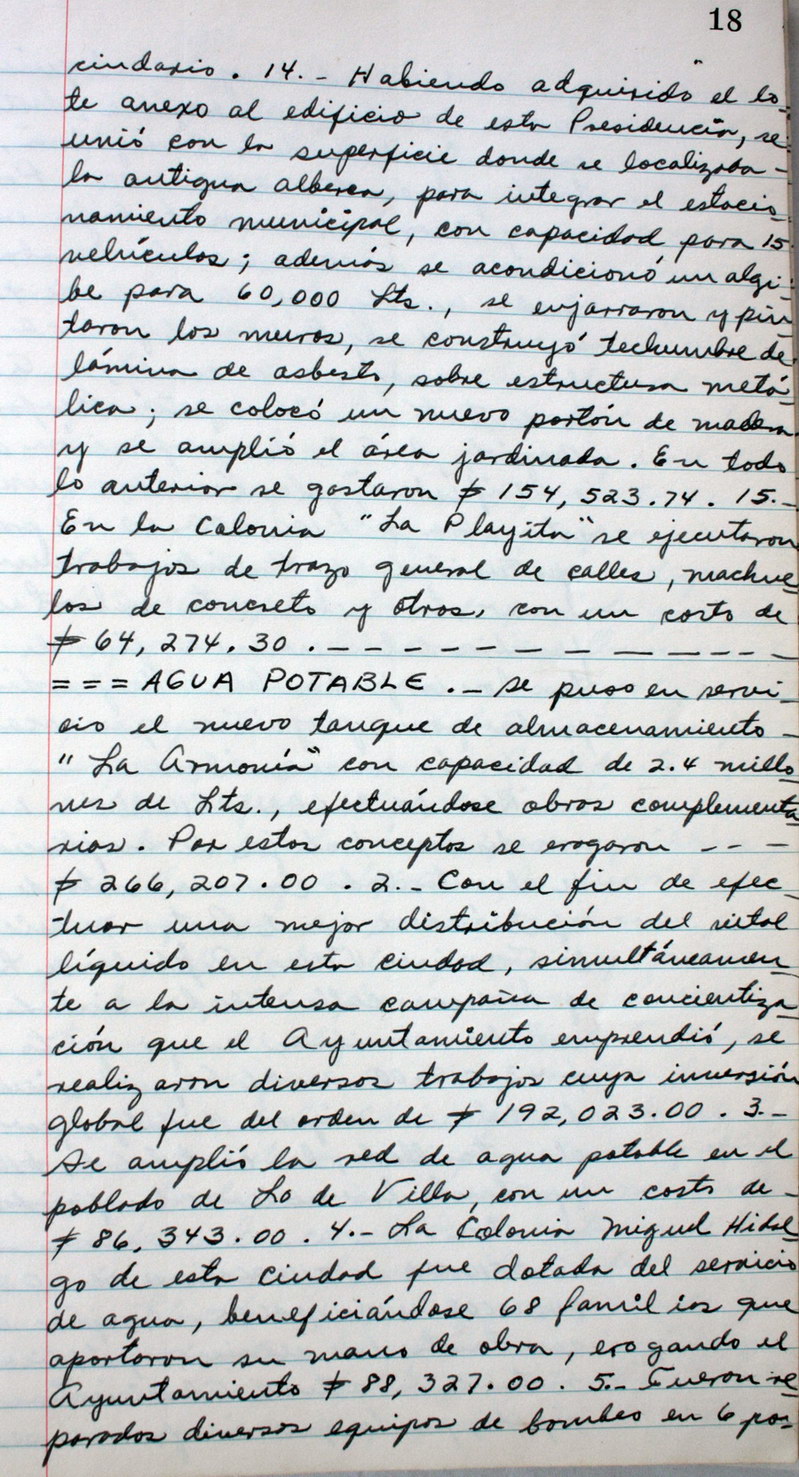 18
cindario. 14.- Habiendo adquirido el lo-
te anexo al edificio de esta Presidencia, se
unió con la superficie donde se localizaba -
la antigua alberca, para integrar el estacio-
namiento municipal, con capacidad para 15
vehículos; además se acondicionó un algi-
be para 60,000 Lts., se enjarraron y pin
taron los muros, se construyó techumbre de
lámina de asbesto, sobre estructura metá-
lica; se colocó un nuevo portón de madera
y se amplió el área jardinada. En todo
lo anterior se gastaron $ 154,523.74. 15.-
En la Colonia "La Playita" se ejecutaron
trabajos de trazo general de calles, machue
los de concreto y otros, con un costo de
$ 64,274.30 . _ _ _ _ _ _ _ _ _ _ _ _
=== AGUA POTABLE ._ Se puso en servi-
cio el nuevo tanque de almacenamiento -
"La Armonía" con capacidad de 2.4 millo
nes de Lts., efectuándose obras complementa
rias. Por estos conceptos se erogaron - - -
$ 266,207.00 . 2.- Con el fin de efec-
tuar una mejor distribución del vital
líquido en esta ciudad, simultáneamen-
te a la intensa campaña de concientiza-
ción que el Ayuntamiento emprendió, se
realizaron diversos trabajos cuya inversión
global fue del orden de $ 192,023.00 . 3.-
Se amplió la red de agua potable en el
poblado de Lo de Villa, con un costo de -
$ 86,343.00 . 4.- La Colonia Miguel Hidal
go de esta ciudad fue dotada del servicio
de agua, beneficiándose 68 familias que
aportaron su mano de obra, erogando el
Ayuntamiento $ 88,327.00 . 5.- Fueron re
parados diversos equipos de bombeo en 6 po-